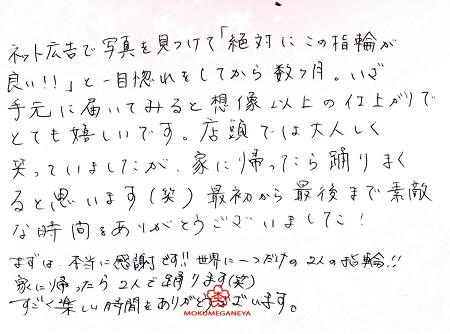 ネット広告で写真を見つけて「絶対にこの指輪が
良い!!」と一目惚れをしてから数ヶ月。いざ
手元に届いてみると想像以上の仕上がりで
とても嬉しいです。店頭では大人しく
笑っていましたが、家に帰ったら踊りまく
ると思います(笑) 最初から最後まで素敵
な時間をありがとうございました!
まずは、本当に感謝です!! 世界に一つだけの2人の指輪!!
家に帰ったら2人で踊ります(笑)
すごく楽しい時間をありがとうございます。
MOKUMEGANEYA